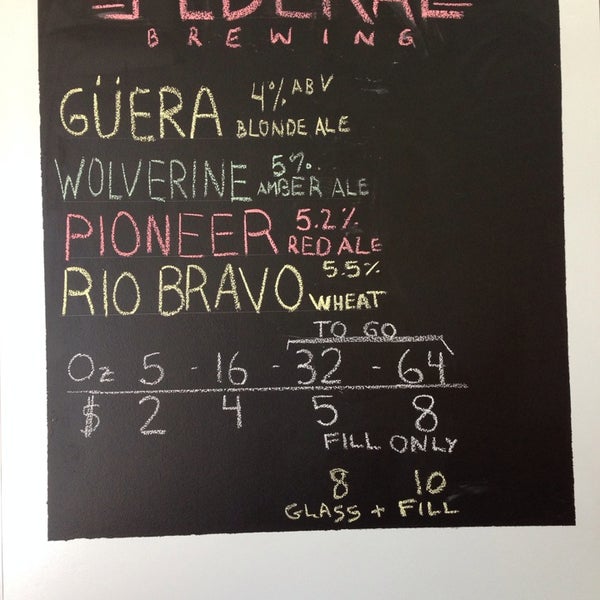 FEDERAL
BREWING
GÜERA 4% ABV
BLONDE ALE
WOLVERINE 5%
AMBER ALE
PIONEER 5.2%
RED ALE
RIO BRAVO 5.5%
WHEAT
TO GO
Oz 5 - 16 - 32 - 64
$ 2 4 5 8
FILL ONLY
8 10
GLASS + FILL